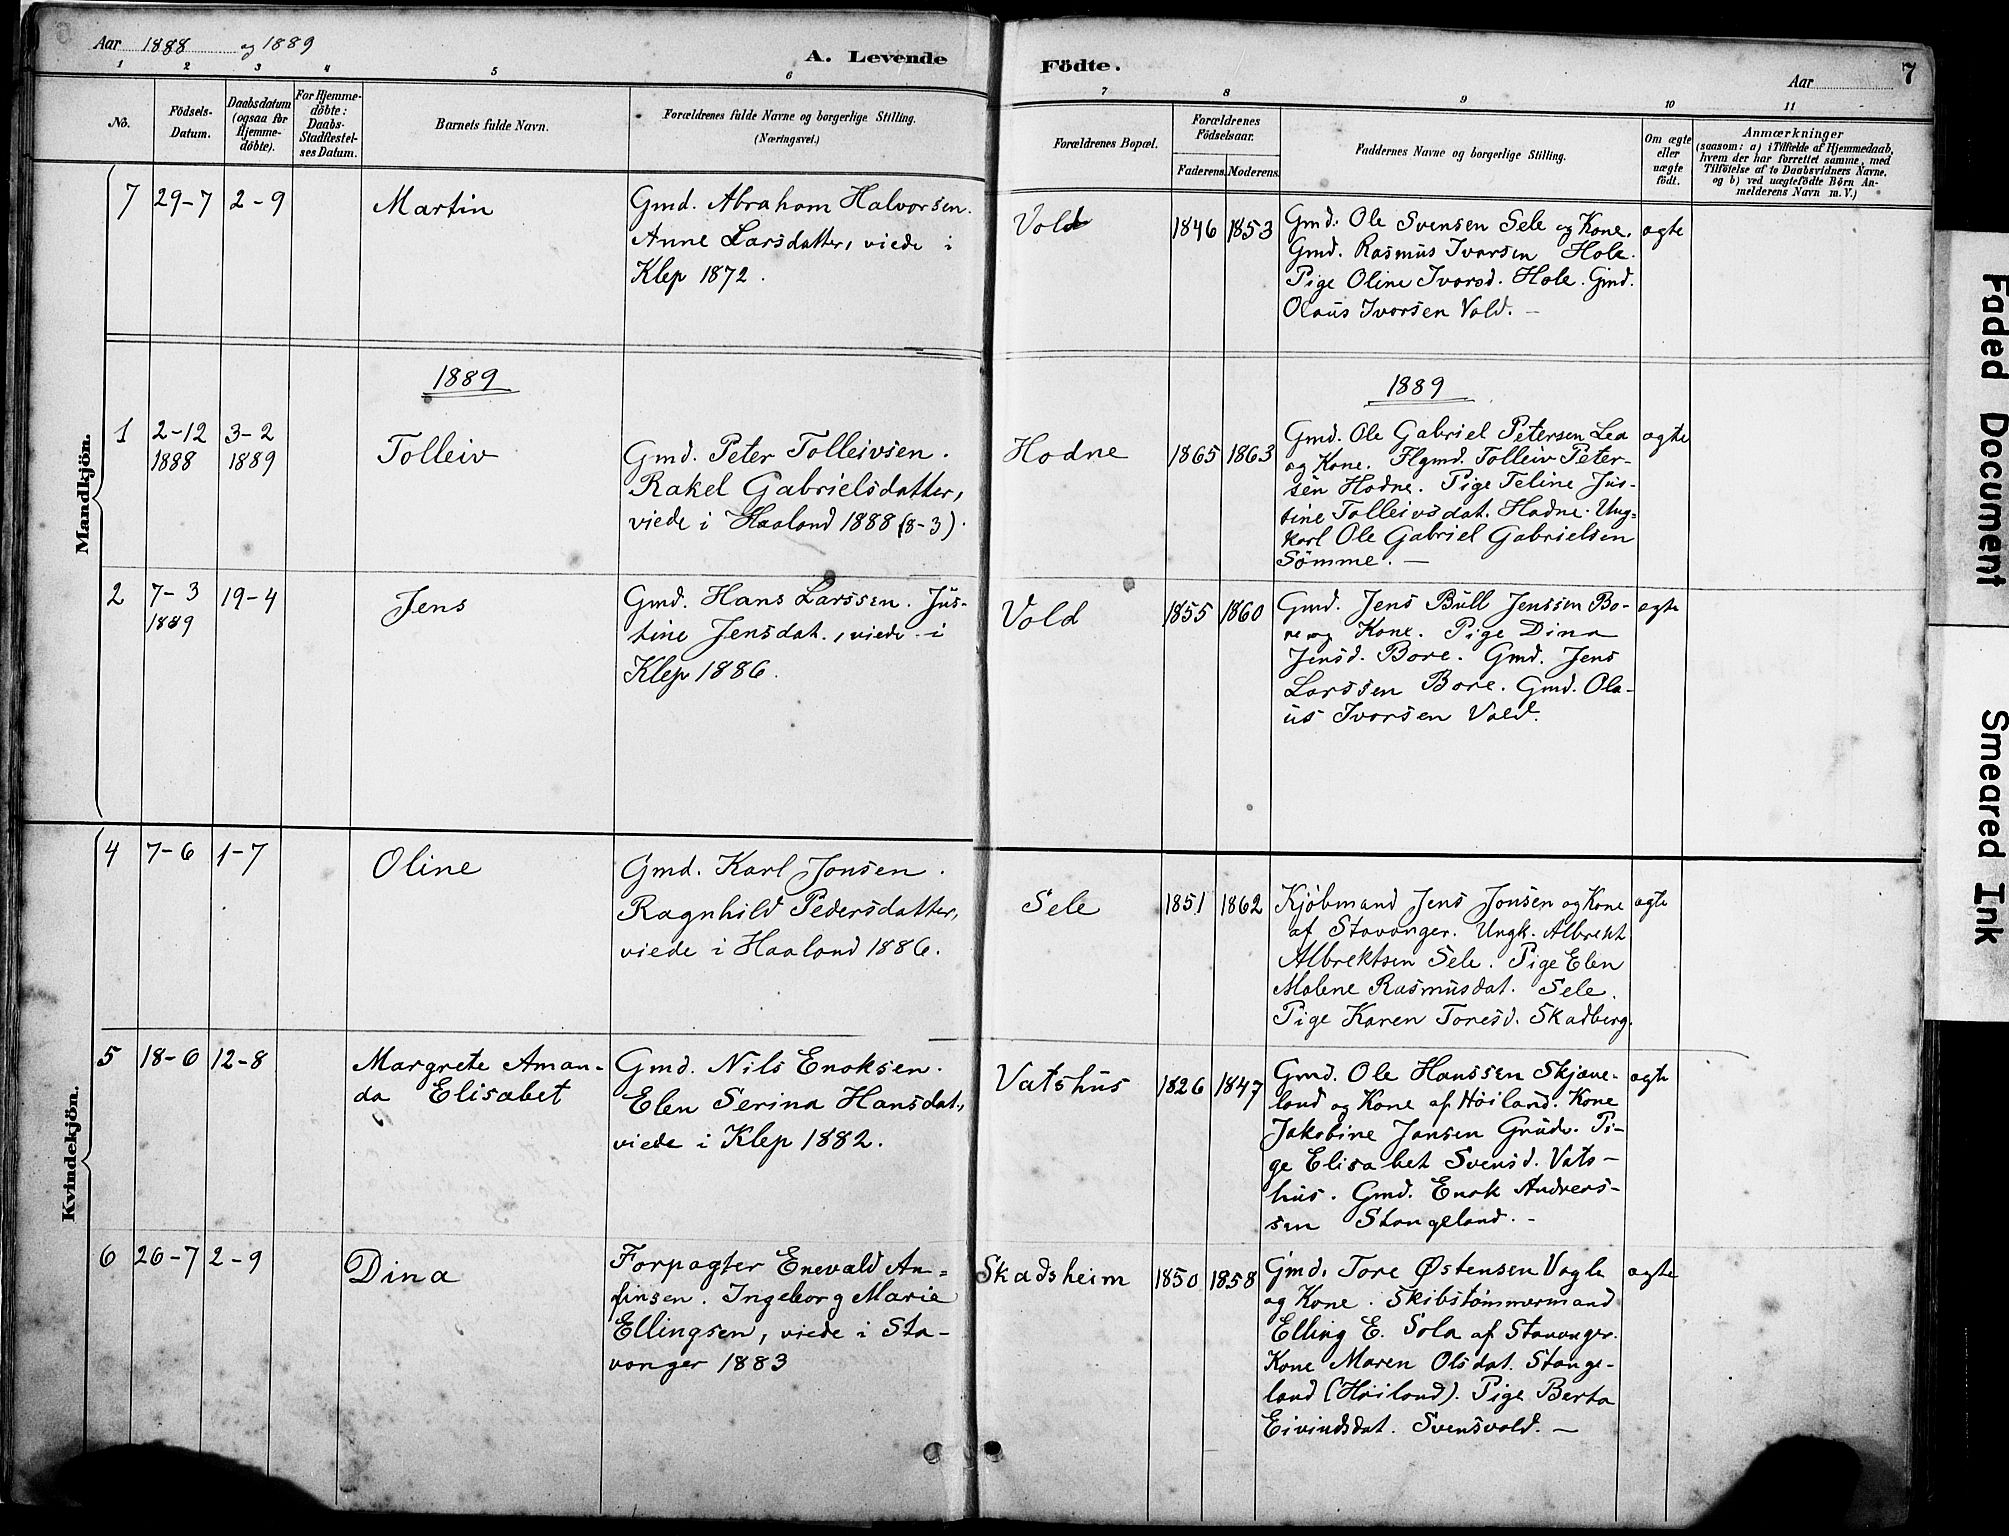 Aar 1888 og 1889
A. Levende
Födte.
Aar
7
1 2 3 4 5 6 7 8 9 10 11
No.
Födsels-
Datum.
Daabsdatum
(ogsaa for
Hjemme-
döbte).
For Hjemme-
döbte:
Daabs-
Stadfestel-
ses Datum.
Barnets fulde Navn.
Forældrenes fulde Navne og borgerlige Stilling.
(Næringsvei.)
Forældrenes Bopæl.
Forældrenes
Födselsaar.
Faderens. Moderens.
Faddernes Navne og borgerlige Stilling.
Om ægte
eller
uægte
födt.
Anmærkninger
(saasom: a) i Tilfælde af Hjemmedaab,
hvem der har forrettet samme, med
Tilföielse af to Daabsvidners Navne,
og b) ved uægtefödte Börn An-
melderens Navn m. V.)
Mandkjön.
7 29-7 2-9
Martin
Gmd. Abraham Halvorsen.
Anne Larsdatter, viede i
Klep 1872.
Vold
1846 1853
Gmd. Ole Svensen Sele og Kone.
Gmd. Rasmus Ivarsen Hole.
Pige Oline Ivarsd. Hole. Gmd.
Olaus Ivarsen Vold. —
ægte
1889
1889
1 2-12 3-2
1888 1889
Tolleiv
Gmd. Peter Tolleivsen.
Rakel Gabrielsdatter,
viede i Haaland 1888 (8-3).
Hodne
1865 1863
Gmd. Ole Gabriel Petersen Lea
og Kone. Flgmd. Tolleiv Peter-
sen Hodne. Pige Teline Jus-
tine Tolleivsdat. Hodne. Ung-
karl Ole Gabriel Gabrielsen
Sömme. —
ægte
2 7-3 19-4
1889
Jens
Gmd. Hans Larssen. Jus-
tine Jensdat., viede i
Klep 1886.
Vold
1855 1860
Gmd. Jens Bull Jenssen Bo-
re og Kone. Pige Dina
Jensd. Bore. Gmd. Jens
Larssen Bore. Gmd. Ola-
us Ivarsen Vold.
ægte
Kvindekjön.
4 7-6 1-7
Oline
Gmd. Karl Jonsen.
Ragnhild Pedersdatter,
viede i Haaland 1886.
Sele
1851 1862
Kjöbmand Jens Jonsen og Kone
af Stavanger. Ungk. Albrekt
Albrektsen Sele. Pige Elen
Malene Rasmusdat. Sele.
Pige Karen Toresd. Skadberg.
ægte
5 18-6 12-8
Margrete Aman-
da Elisabet
Gmd. Nils Enoksen.
Elen Serina Hansdat,
viede i Klep 1882.
Vatshus
1826 1847
Gmd. Ole Hanssen Skjæve-
land og Kone af Höiland. Kone
Jakobine Jansen Grude. Pi-
ge Elisabet Svensd. Vats-
hus. Gmd. Enok Anders-
sen Stangeland. -
ægte
6 26-7 2-9
Dina
Forpagter Enevald An-
finsen. Ingeborg Marie
Ellingsen, viede i Sta-
vanger 1883
Skadsheim
1850 1858
Gmd. Tore Østensen Vagle
og Kone. Skibstömmermand
Elling E. Sola af Stavanger.
Kone Maren Olsdat. Stange-
land (Höiland). Pige Berta
Eivindsdat. Svensvold. —
ægte
Faded Document
Smeared Ink